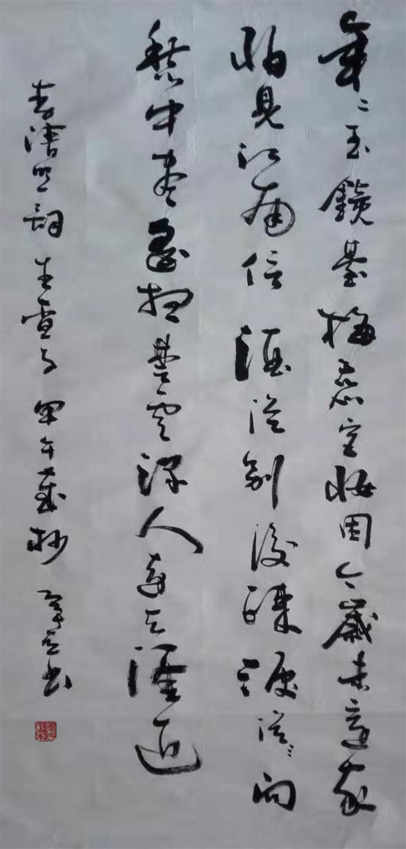 年〻玉鏡臺梅蕊宮妝困今歲未還家
怕見江南信酒從別後疎淚向
愁中盡遙想楚雲深人遠天涯近
李清照詞生查子甲午歲杪書